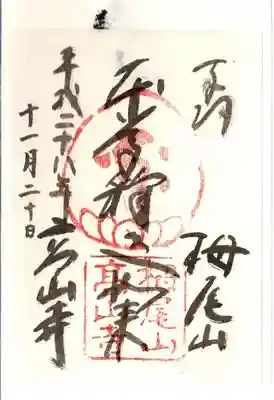 栂尾山
釋迦如来
高山寺
平成二十八年
十一月二十日
栂尾山
高山寺